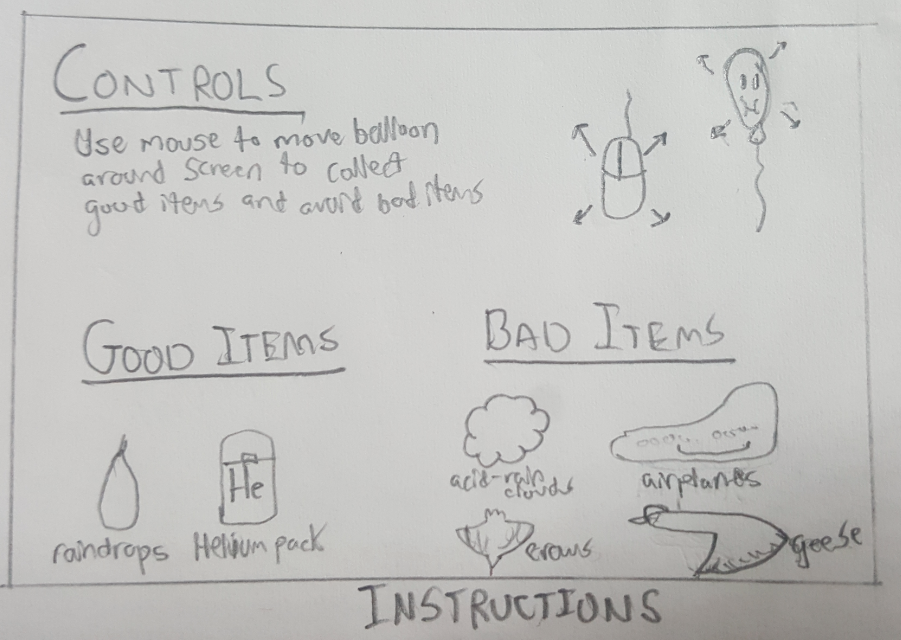 CONTROLS
Use mouse to move balloon
around screen to collect
good items and avoid bad items
GOOD ITEMS
raindrops
He
Helium pack
BAD ITEMS
acid-rain
clouds
airplanes
crows
geese
INSTRUCTIONS